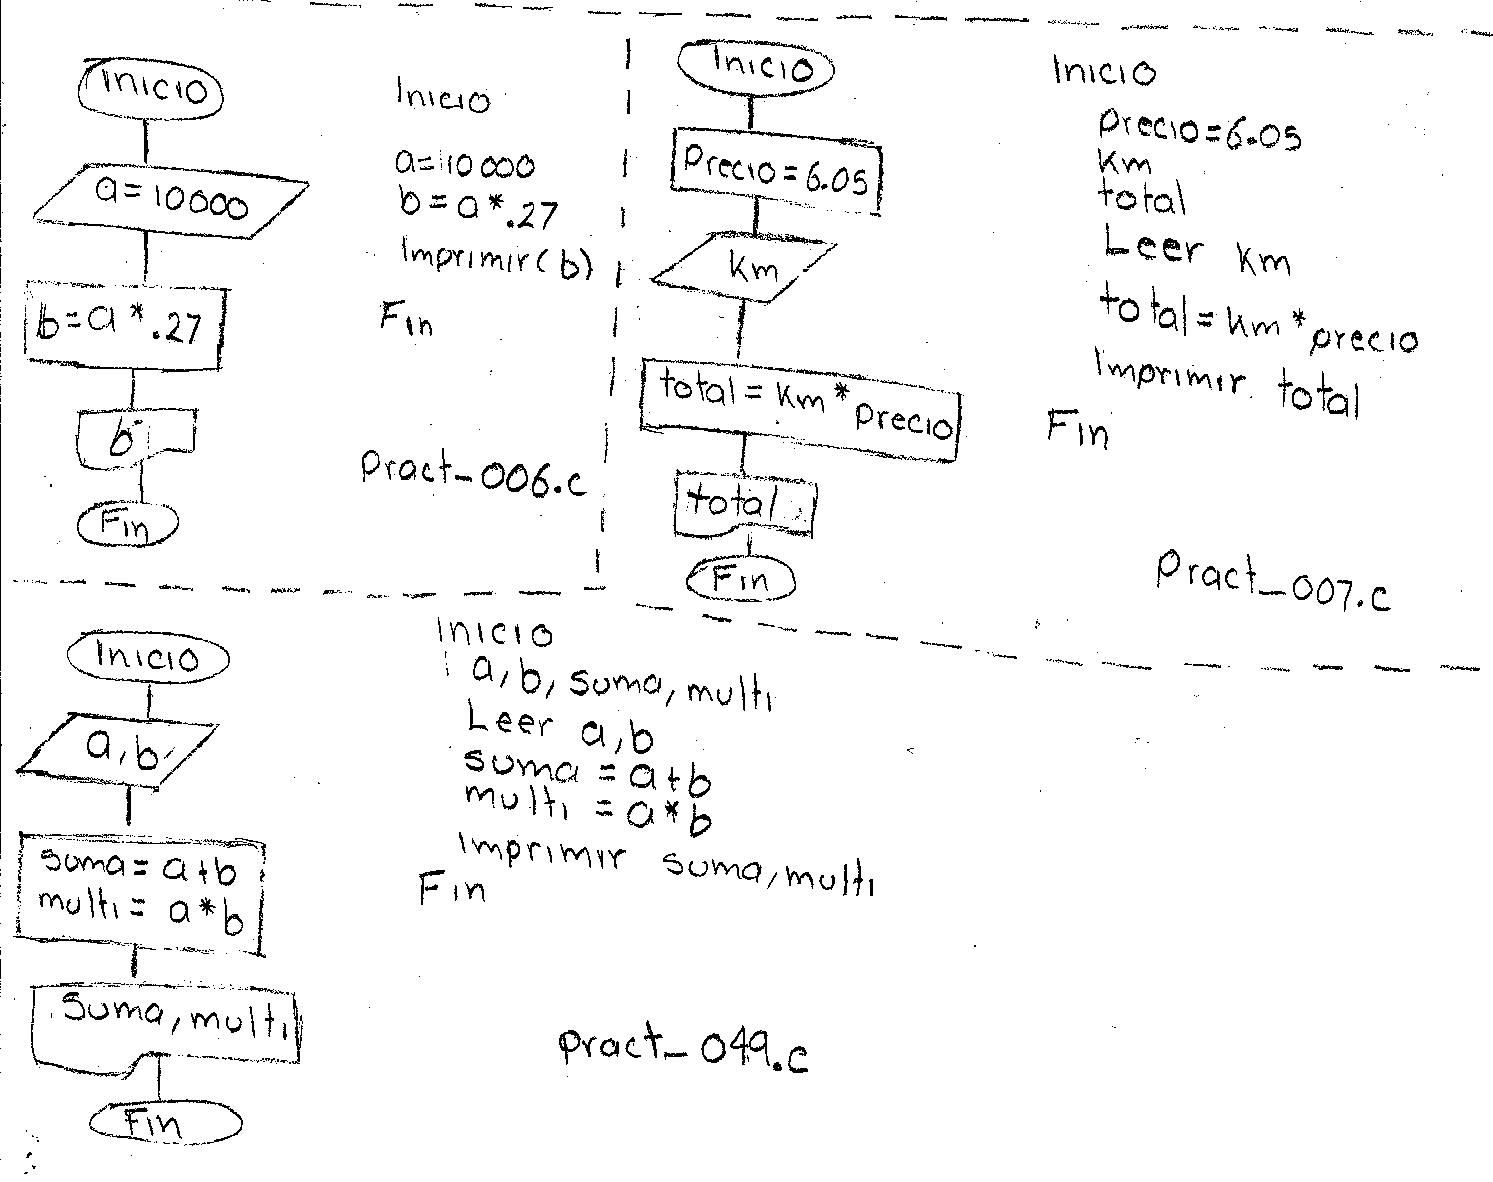 Inicio
a=10000
b=a*.27
b
Fin
Inicio
a=10000
b=a*.27
Imprimir(b)
Fin
pract_006.c
Inicio
Precio=6.05
km
total=km*precio
total
Fin
Inicio
precio=6.05
km
total
Leer km
total=km*precio
Imprimir total
Fin
pract_007.c
Inicio
a,b
suma=a+b
multi=a*b
suma,multi
Fin
Inicio
a,b,suma,multi
Leer a,b
suma=a+b
multi=a*b
Imprimir suma,multi
Fin
pract_049.c